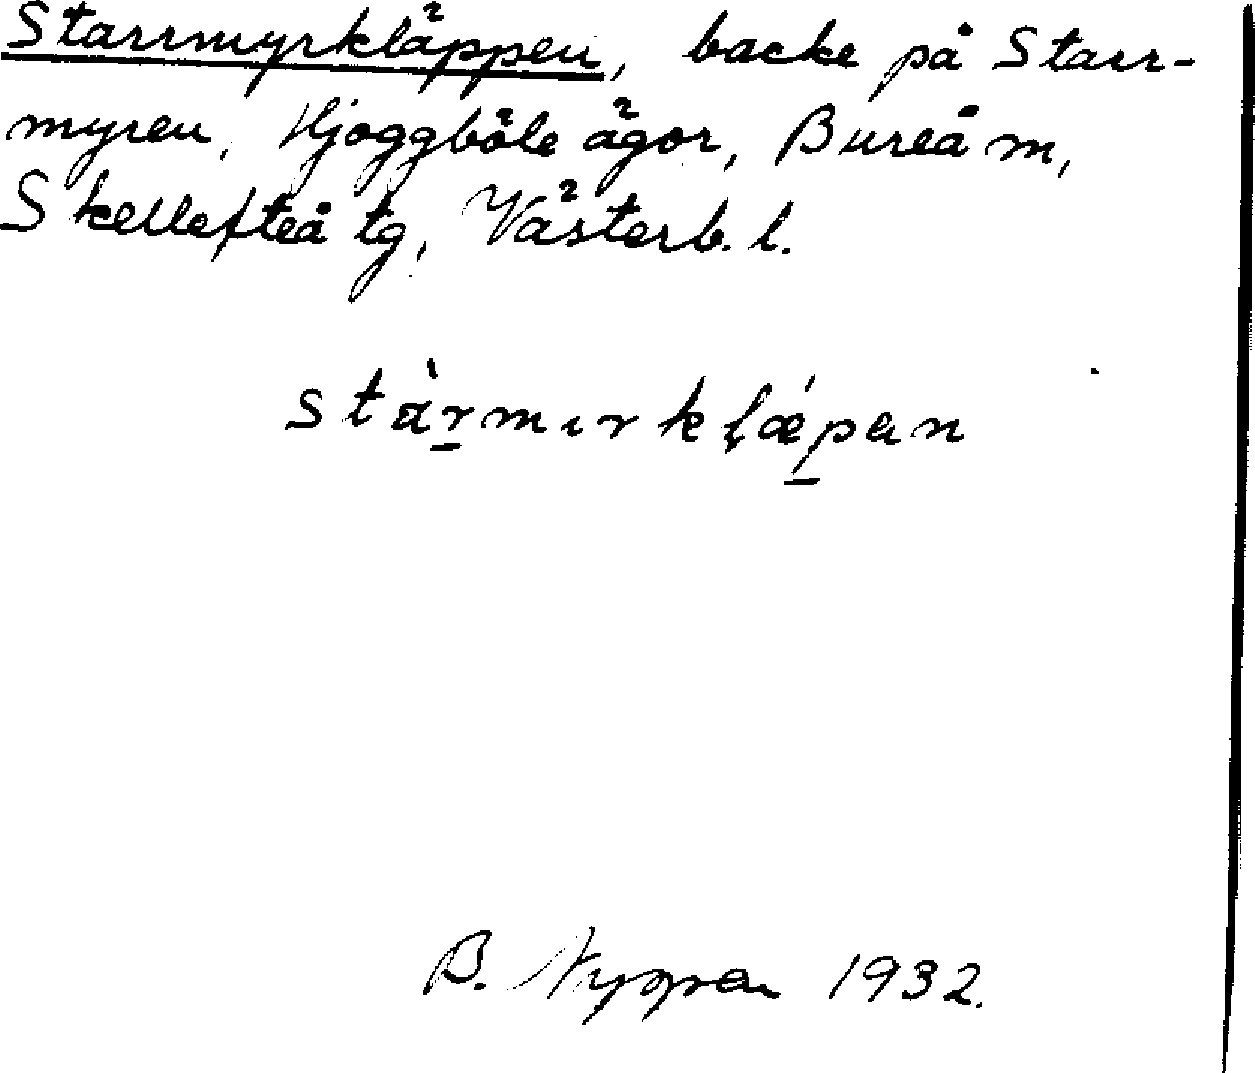 Starrmyrkläppen, backe på Starr-
myren, Hjoggböle ägor, Bureå m,
Skellefteå tg, Västerb. l.
stàr̲mırkḷǽp̲an
B. Nygren 1932.